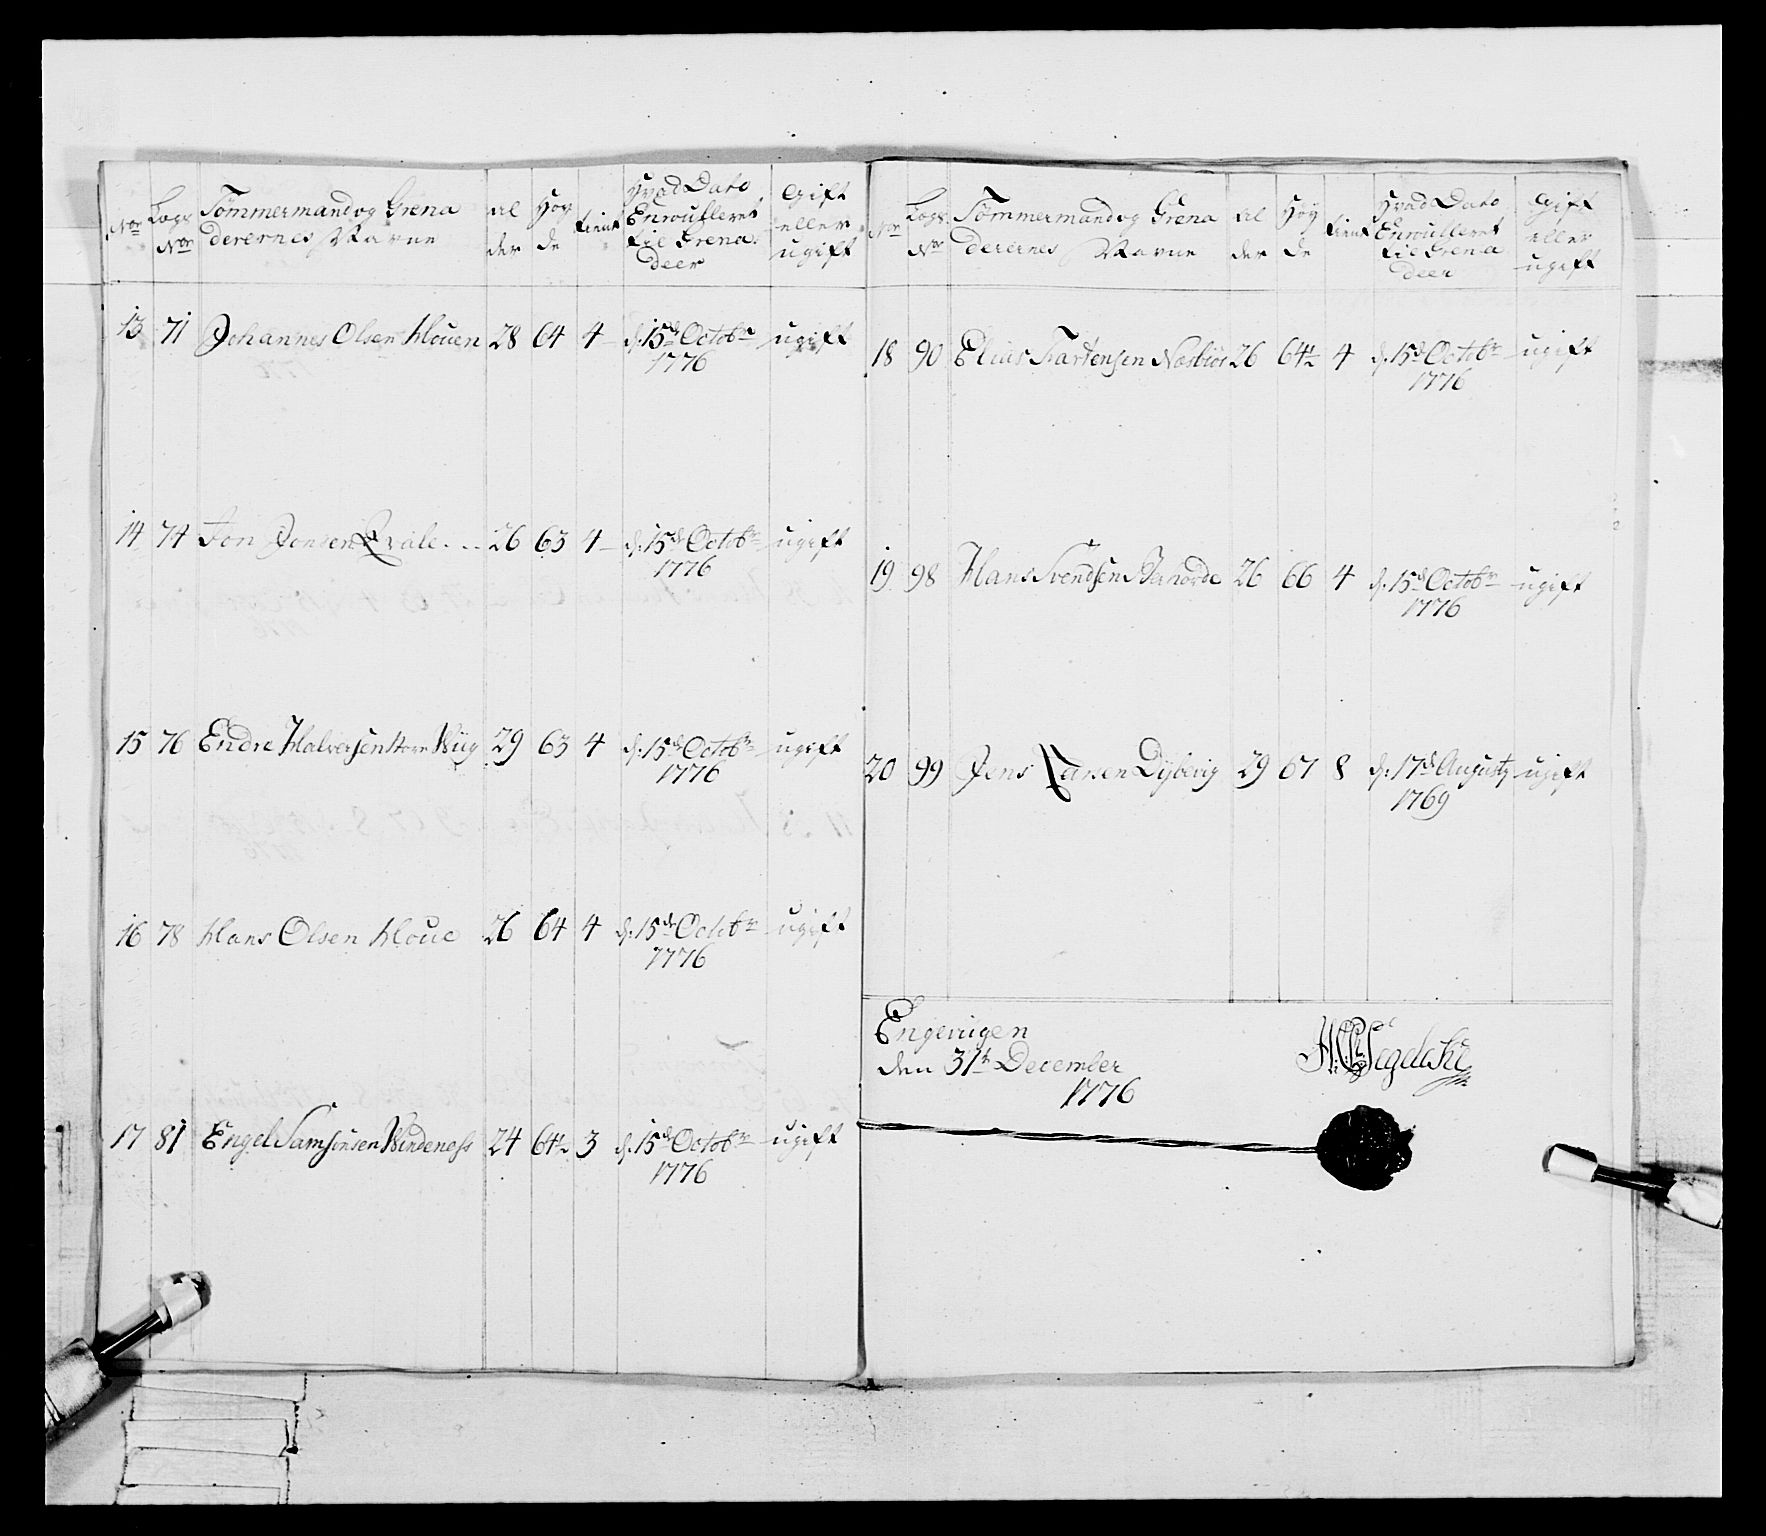 No Lægs No Tömmermand og Grenaderernes Navne Alder Höyde tient Hvad Dato Enroulleret til Grenadeer Gift eller ugift
13 71 Johannes Olsen Houen 28 64 4 d. 15de Octobr 1776 ugift
14 74 Jon Jonsen Qvale 26 63 4 d. 15de Octobr 1776 ugift
15 76 Endre Halversen Wiig 29 63 4 d. 15de Octobr 1776 ugift
16 78 Hans Olsen Houe 26 64 4 d. 15de Octobr 1776 ugift
17 81 Engel Samsonsen Windeness 24 64½ 3 d. 15de Octobr 1776 ugift
No Lægs No Tömmermand og Grenaderernes Navne Alder Höyde tient Hvad Dato Enroulleret til Grenadeer Gift eller ugift
18 90 Elias Tartensen 26 64½ 4 d. 15de Octobr 1776 ugift
19 98 Hans Svendsen 26 66 4 d. 15de Octobr 1776 ugift
20 99 Jens Larsen Dybevig 29 67 8 d: 17de Augusty 1769 ugift
Engevigen
den 31te December
1776